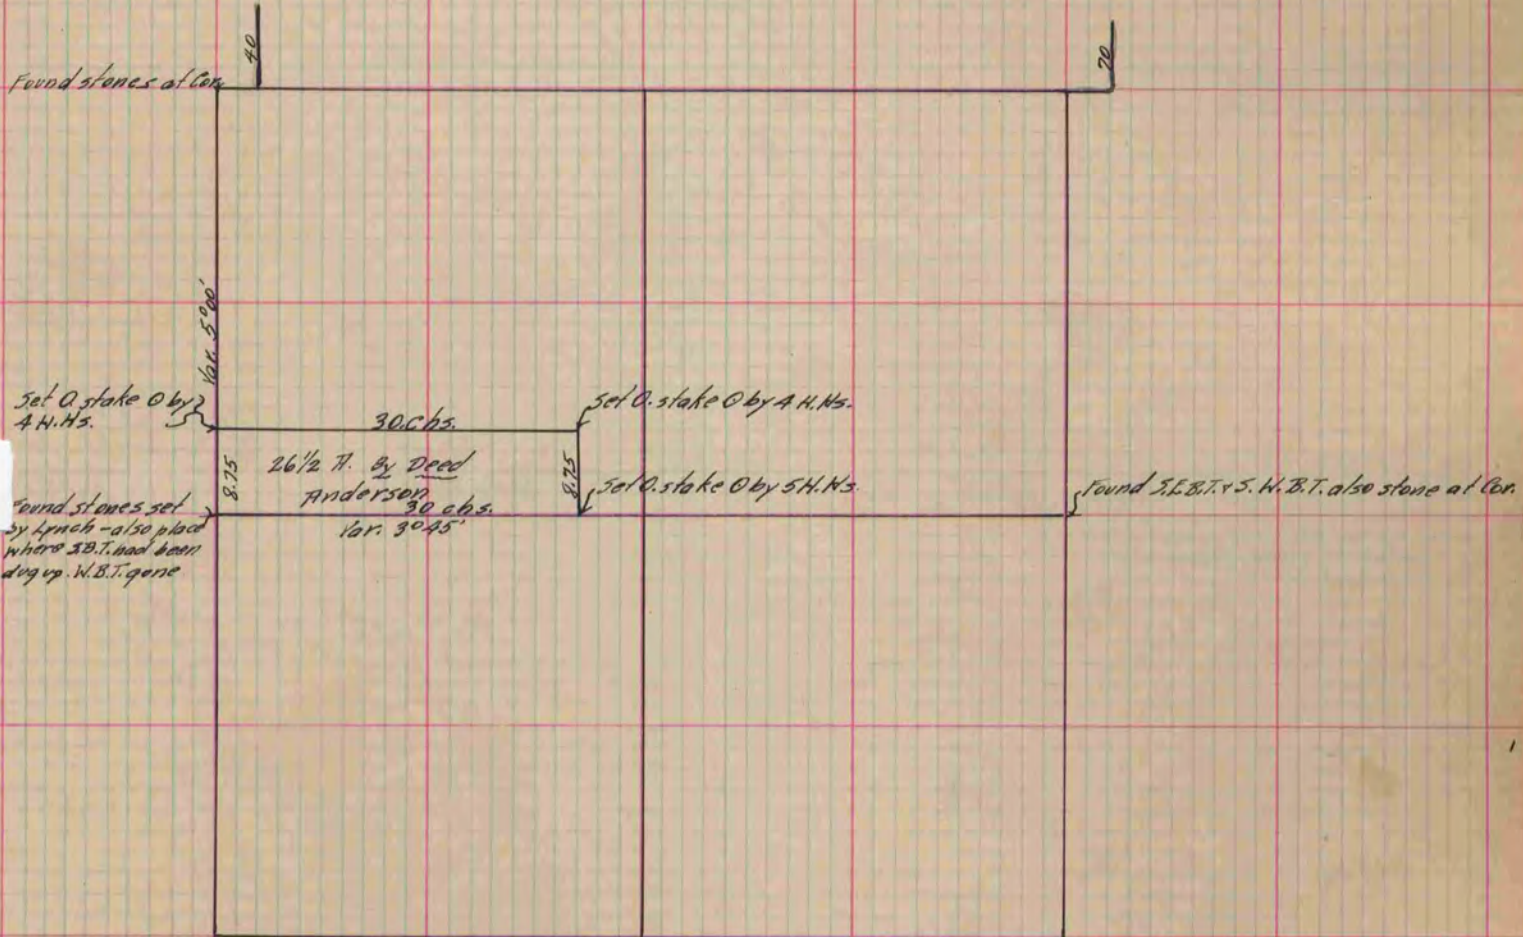 40
20
Found stones at Cor.
Var. 5°00'
Set O. stake O by
4 H.Hs.
30. chs.
Set O. stake O by 4 H.Hs.
8.75
26 1/2 A. By Deed
Anderson
8.75
Set O. stake O by 5 H.Hs.
30 chs.
Var. 3°45'
Found stones set
by Lynch - also place
where S.B.T. had been
dug up. W.B.T. gone
Found S.E.B.T. & S.W.B.T. also stone at Cor.